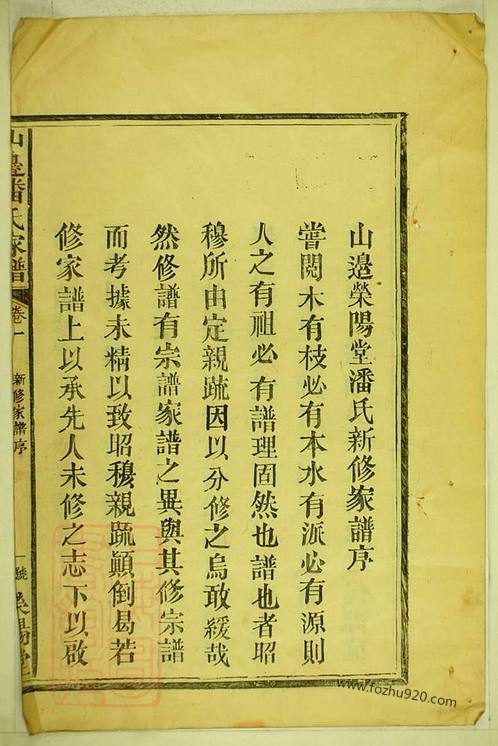 山邉榮陽堂潘氏新修家譜序
嘗閱木有枝必有本水有派必有源則
人之有祖必有譜理固然也譜也者昭
穆所由定親疏因以分修之烏敢緩哉
然修譜有宗譜家譜之異與其修宗譜
而考據未精以致昭穆親疏顚倒曷若
修家譜上以承先人未修之志下以啟
山邉潘氏家譜
卷一
新修家譜序
一號
www.fozhu920.com